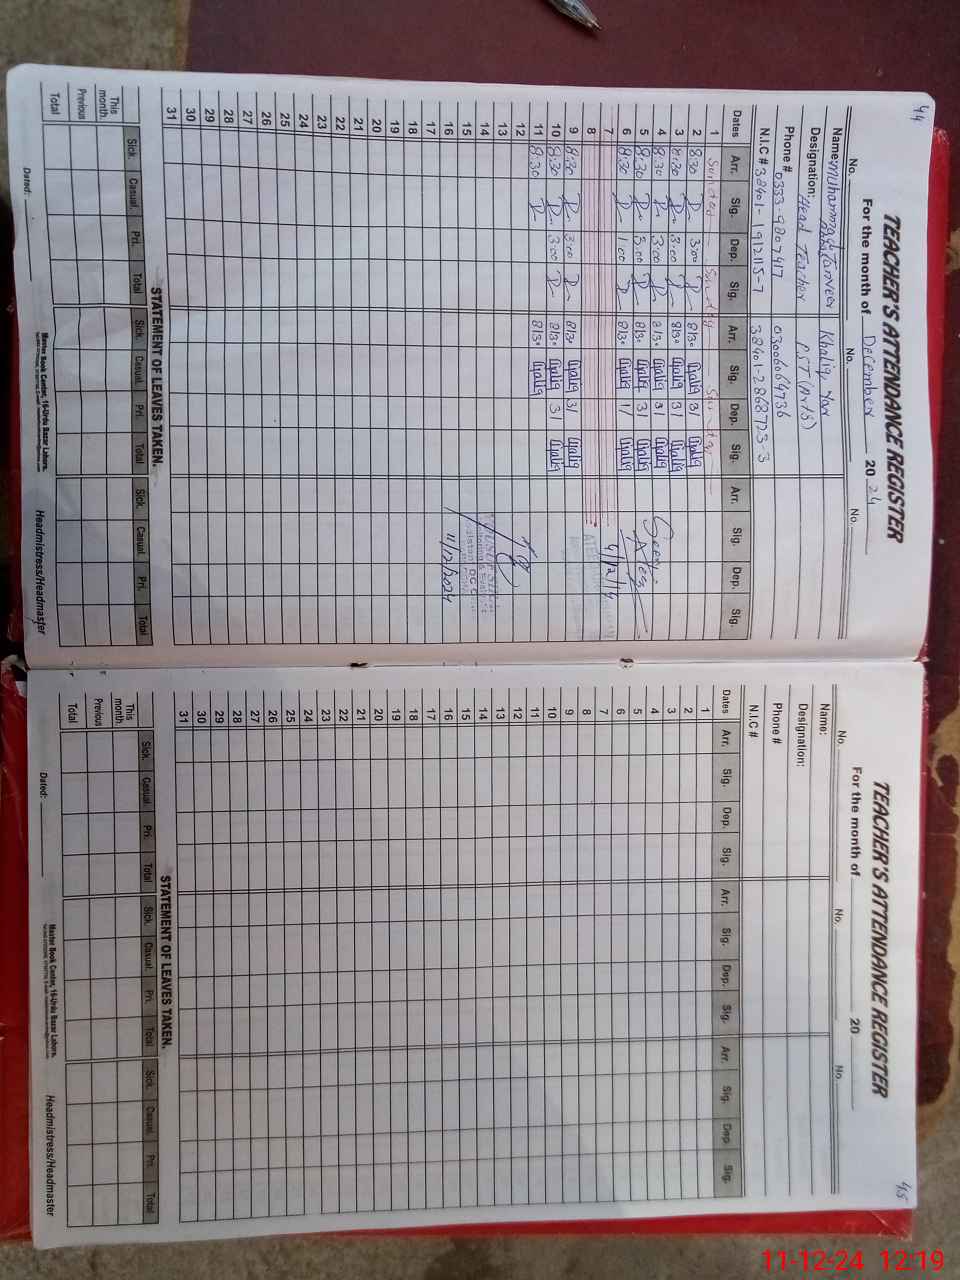 44
TEACHER'S ATTENDANCE REGISTER
For the month of December 20 24
No. No. No.
Name: Muhammad Tanveer Khaliq Yar
Designation: Head Teacher PST (Arts)
Phone # 0333-9807417 03006069736
N.I.C # 38401-1912115-7 38401-2868723-3
Dates Arr. Sig. Dep. Sig. Arr. Sig. Dep. Sig. Arr. Sig. Dep. Sig.
1 Sunday Sunday Sunday
2 8:30 3:00 8/30 3/
3 8:30 3:00 8/30 3/
4 8:30 3:00 8/30 3/
5 8:30 3:00 8/30 3/
6 8:30 1:00 8/30 1/
7
8
9 8:30 3:00 8/30 3/
10 8:30 3:00 8/30 3/
11 8:30 8/30
12
13
14
15
16
17
18
19
20
21
22
23
24
25
26
27
28
29
30
31
11/12/2024
STATEMENT OF LEAVES TAKEN.
Sick. Casual. Pri. Total Sick. Casual. Pri. Total Sick. Casual. Pri. Total
This month.
Previous
Total
Dated:
Master Book Center, 16-Urdu Bazar Lahore.
Headmistress/Headmaster
45
TEACHER'S ATTENDANCE REGISTER
For the month of 20
No. No. No.
Name:
Designation:
Phone #
N.I.C #
Dates Arr. Sig. Dep. Sig. Arr. Sig. Dep. Sig. Arr. Sig. Dep. Sig.
1
2
3
4
5
6
7
8
9
10
11
12
13
14
15
16
17
18
19
20
21
22
23
24
25
26
27
28
29
30
31
STATEMENT OF LEAVES TAKEN.
Sick. Casual. Pri. Total Sick. Casual. Pri. Total Sick. Casual. Pri. Total
This month.
Previous
Total
Dated:
Master Book Center, 16-Urdu Bazar Lahore.
Headmistress/Headmaster
11-12-24 12:19